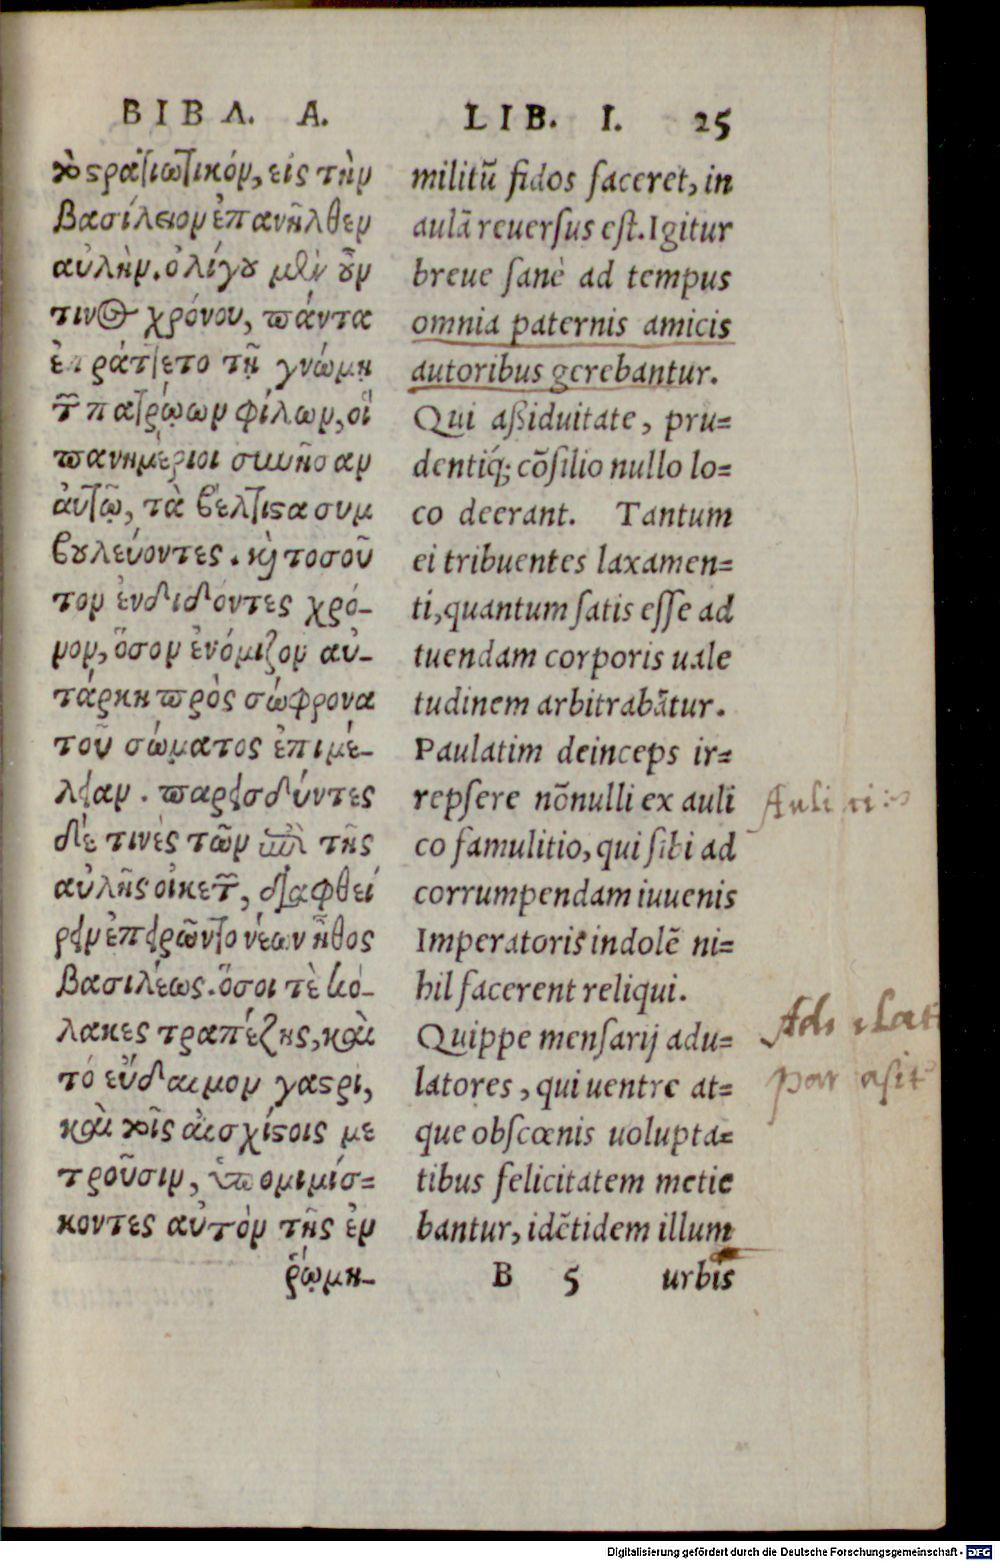 ΒΙΒΛ. Α.
τὸ στρατιωτικόν, εἰς τὴν
βασίλειον ἐπανῆλθεν
αὐλήν. ὀλίγου μὲν οὖν
τινος χρόνου, πάντα
ἐπράττετο τῇ γνώμῃ
τῶν πατρῴων φίλων, οἳ
πανημέριοι συνῆσαν
αὐτῷ, τὰ βέλτιστα συμ
βουλεύοντες. καὶ τοσοῦ
τον ἐνδιδόντες χρό-
νον, ὅσον ἐνόμιζον αὐ-
τάρκη πρὸς σώφρονα
τοῦ σώματος ἐπιμέ-
λειαν. παρεισδύντες
δέ τινὲς τῶν ἐπὶ τῆς
αὐλῆς οἰκετῶν, διαφθεί
ρειν ἐπειρῶντο νέων ἦθος
βασιλέως. ὅσοι τὲ κό-
λακες τραπέζης, καὶ
τό εὔδαιμον γαστρι,
καὶ τοῖς αἰσχίστοις με
τροῦσιν, ὑπομιμίσ=
κοντες αὐτὸν τῆς ἐν
ῥώμη-
LIB. I. 25
militũ fidos faceret, in
aulã reuersus est. Igitur
breue sanè ad tempus
omnia paternis amicis
autoribus gerebantur.
Qui aßiduitate, pru=
dentiq́; cõsilio nullo lo=
co deerant. Tantum
ei tribuentes laxamen=
ti, quantum satis esse ad
tuendam corporis uale
tudinem arbitrabãtur.
Paulatim deinceps ir=
repsere nõnulli ex auli
co famulitio, qui sibi ad
corrumpendam iuuenis
Imperatoris indolẽ ni=
hil facerent reliqui.
Quippe mensarij adu=
latores, qui uentre at=
que obscœnis uolupta=
tibus felicitatem metie
bantur, idẽtidem illum
B 5 urbis
Digitalisierung gefördert durch die Deutsche Forschungsgemeinschaft - DFG